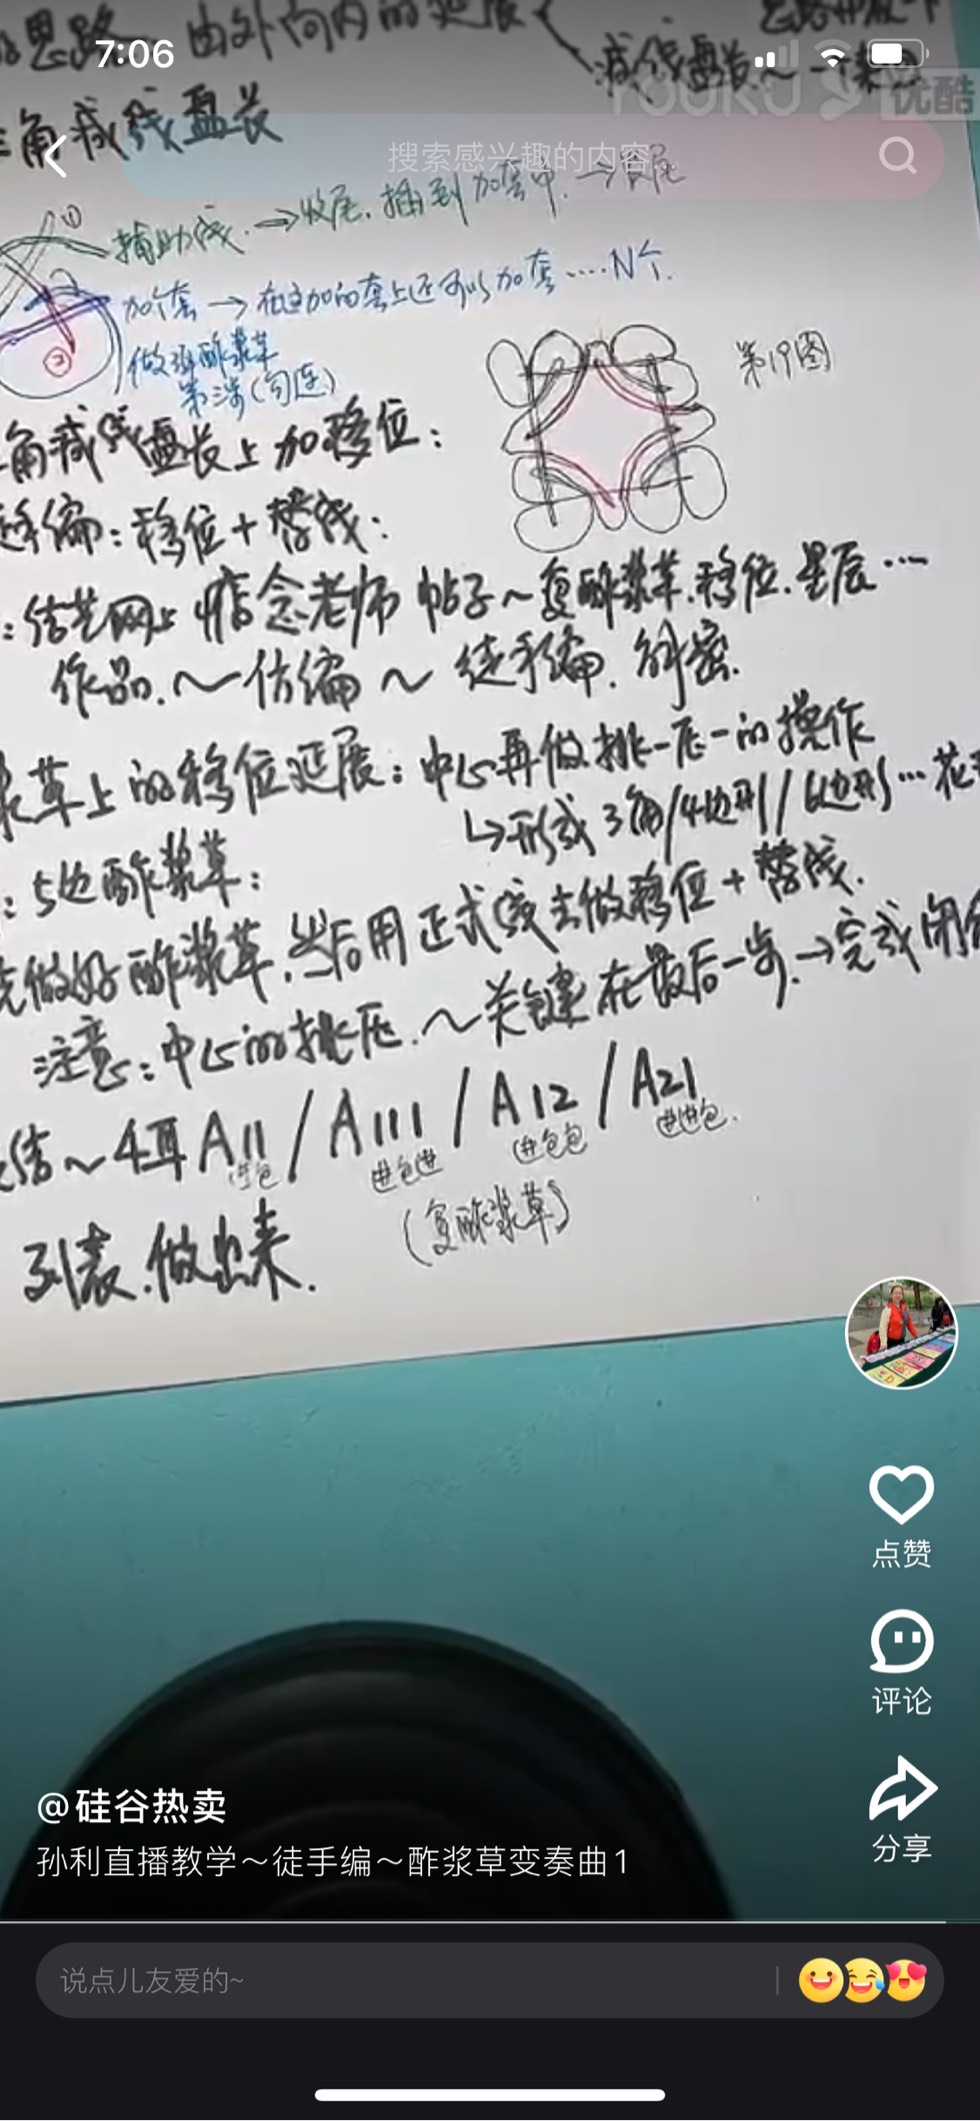 7:06
思路 由外向内的延展
YOUKU 优酷
角减线盘长
搜索感兴趣的内容
①
辅助线 → 收尾. 插到加套中. →
加个套 → 在这加的套上还可以加套 ····N个.
②
做
酢浆草
(勾连)
第19图
角减线盘长上加移位：
徒手编：移位+替线：
：结艺网上 老师 帖子～复酢浆草.移位.星辰…
作品.～仿编～徒手编.
草上的移位延展：中心再做挑一压一的操作
↳形成3角/4边形/6边形…花
：5边酢浆草：
先做好酢浆草.然后用正式线去做移位+替线.
注意：中心的挑压.～关键在最后一步.→完成闭合
结～4耳A11/A111/A12/A21
进包 进包进 进包包 进进包.
(复酢浆草)
列表.做出来.
点赞
评论
分享
@硅谷热卖
孙利直播教学～徒手编～酢浆草变奏曲1
说点儿友爱的~